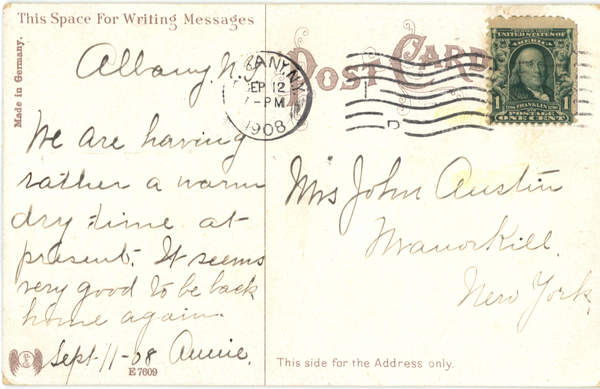 This Space For Writing Messages
Made in Germany.
Albany, N.Y.
We are having
rather a warm
dry time at
present. It seems
very good to be back
home again.
Sept-11-08 Annie.
E 7609
POST CARD
ANY N.Y.
SEP 12
-PM
1908
D
UNITED STATES OF
AMERICA
1 FRANKLIN 1
POSTAGE
ONE CENT
Mrs John Austin
Manorkill.
New York.
This side for the Address only.